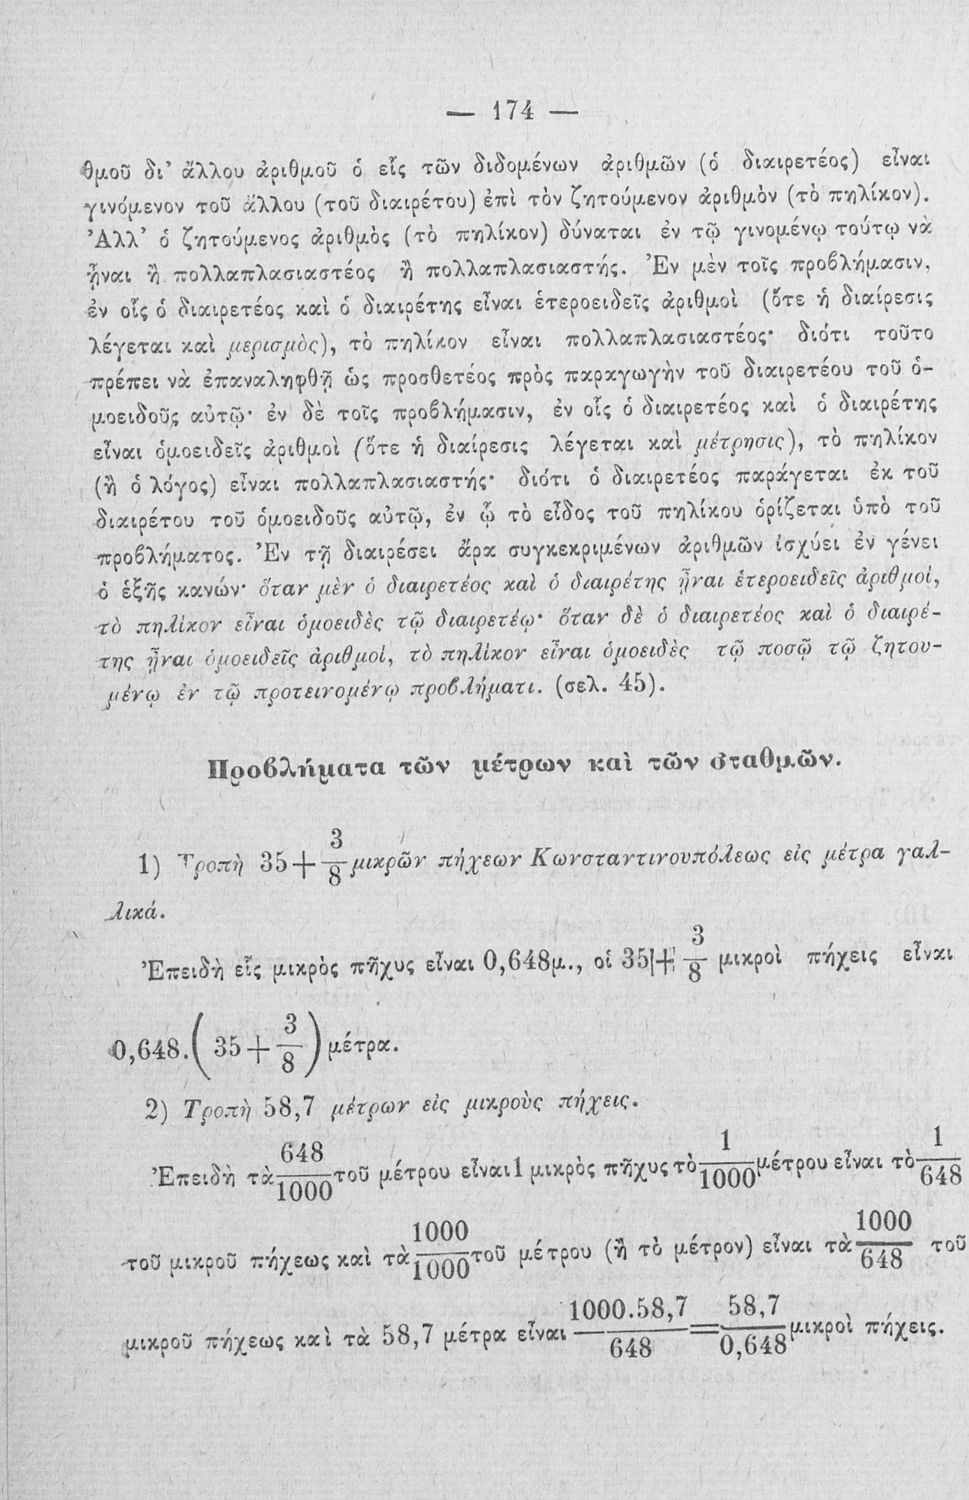 — 174 —
θμοῦ δι' ἄλλου ἀριθμοῦ ὁ εἷς τῶν διδομένων ἀριθμῶν (ὁ διαιρετέος) εἶναι
γινόμενον τοῦ ἄλλου (τοῦ διαιρέτου) ἐπὶ τὸν ζητούμενον ἀριθμὸν (τὸ πηλίκον).
Ἀλλ' ὁ ζητούμενος ἀριθμὸς (τὸ πηλίκον) δύναται ἐν τῷ γινομένῳ τούτῳ νὰ
ᾖναι ἢ πολλαπλασιαστέος ἢ πολλαπλασιαστής. Ἐν μὲν τοῖς προβλήμασιν,
ἐν οἷς ὁ διαιρετέος καὶ ὁ διαιρέτης εἶναι ἑτεροειδεῖς ἀριθμοὶ (ὅτε ἡ διαίρεσις
λέγεται καὶ μερισμὸς), τὸ πηλίκον εἶναι πολλαπλασιαστέος· διότι τοῦτο
πρέπει νὰ ἐπαναληφθῇ ὡς προσθετέος πρὸς παραγωγὴν τοῦ διαιρετέου τοῦ ὁ-
μοειδοῦς αὐτῷ· ἐν δὲ τοῖς προβλήμασιν, ἐν οἷς ὁ διαιρετέος καὶ ὁ διαιρέτης
εἶναι ὁμοειδεῖς ἀριθμοὶ (ὅτε ἡ διαίρεσις λέγεται καὶ μέτρησις), τὸ πηλίκον
(ἢ ὁ λόγος) εἶναι πολλαπλασιαστής· διότι ὁ διαιρετέος παράγεται ἐκ τοῦ
διαιρέτου τοῦ ὁμοειδοῦς αὐτῷ, ἐν ᾧ τὸ εἶδος τοῦ πηλίκου ὁρίζεται ὑπὸ τοῦ
προβλήματος. Ἐν τῇ διαιρέσει ἄρα συγκεκριμένων ἀριθμῶν ἰσχύει ἐν γένει
ὁ ἑξῆς κανών· ὅταν μὲν ὁ διαιρετέος καὶ ὁ διαιρέτης ᾖναι ἑτεροειδεῖς ἀριθμοὶ,
τὸ πηλίκον εἶναι ὁμοειδὲς τῷ διαιρετέῳ· ὅταν δὲ ὁ διαιρετέος καὶ ὁ διαιρέ-
της ᾖναι ὁμοειδεῖς ἀριθμοὶ, τὸ πηλίκον εἶναι ὁμοειδὲς τῷ ποσῷ τῷ ζητου-
μένῳ ἐν τῷ προτεινομένῳ προβλήματι. (σελ. 45).
Προβλήματα τῶν μέτρων καὶ τῶν σταθμῶν.
1) Τροπὴ 35 + 3/8 μικρῶν πήχεων Κωνσταντινουπόλεως εἰς μέτρα γαλ-
λικά.
Ἐπειδὴ εἷς μικρὸς πῆχυς εἶναι 0,648μ., οἱ 35 + 3/8 μικροὶ πήχεις εἶναι
0,648.(35 + 3/8) μέτρα.
2) Τροπὴ 58,7 μέτρων εἰς μικροὺς πήχεις.
Ἐπειδὴ τὰ 648/1000 τοῦ μέτρου εἶναι 1 μικρὸς πῆχυς τὸ 1/1000 μέτρου εἶναι τὸ 1/648
τοῦ μικροῦ πήχεως καὶ τὰ 1000/1000 τοῦ μέτρου (ἢ τὸ μέτρον) εἶναι τὰ 1000/648 τοῦ
μικροῦ πήχεως καὶ τὰ 58,7 μέτρα εἶναι 1000.58,7/648 = 58,7/0,648 μικροὶ πήχεις.